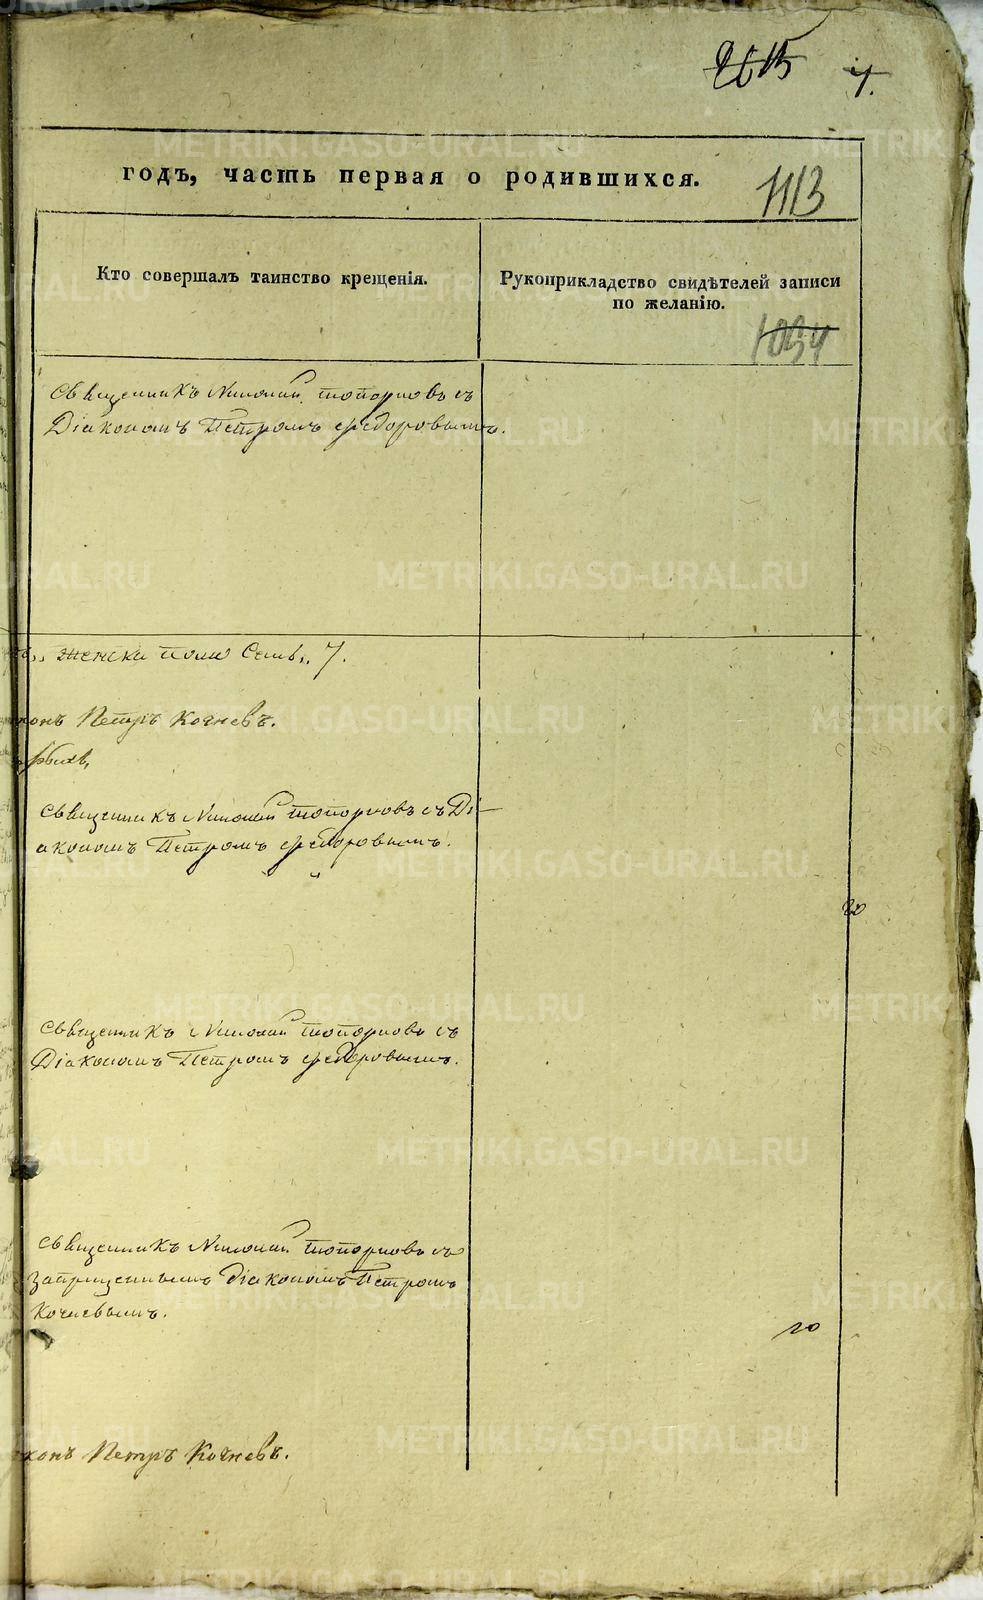 4.
годъ, часть первая о родившихся.
1113
Кто совершалъ таинство крещенія.
Рукоприкладство свидѣтелей записи
по желанію.
1034
Священникъ Николай Топорковъ съ
Діакономъ Петромъ Федоровымъ.
женска полу Семь,, 7.
конъ Петръ Кочневъ.
Священникъ Николай Топорковъ съ Ді-
акономъ Петромъ Федоровымъ.
20
Священникъ Николай Топорковъ съ
Діакономъ Петромъ Федоровымъ.
Священникъ Николай Топорковъ съ
запрещеннымъ Діакономъ Петромъ
Кочневымъ.
конъ Петръ Кочневъ.
METRIKI.GASO-URAL.RU